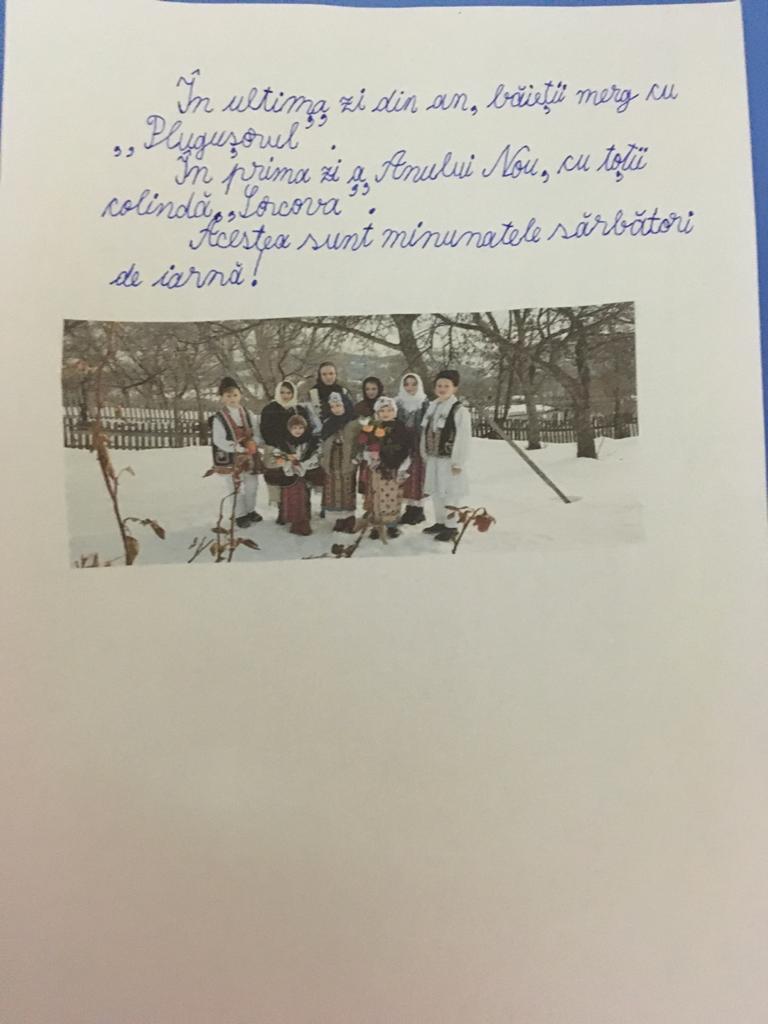 În ultima zi din an, băieții merg cu
„Plugușorul”.
În prima zi a Anului Nou, cu toții
colindă „Sorcova”.
Acestea sunt minunatele sărbători
de iarnă!